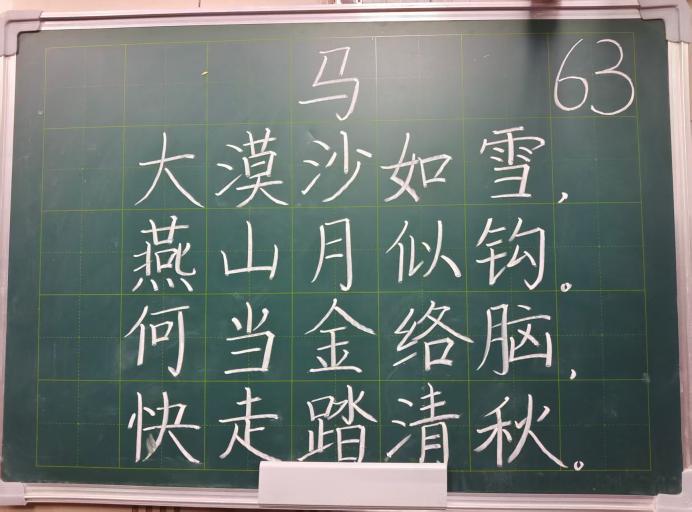 马 63
大漠沙如雪，
燕山月似钩。
何当金络脑，
快走踏清秋。